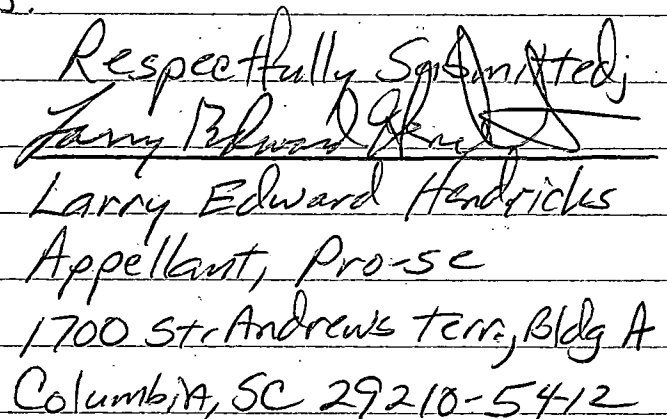 Respectfully Submitted;
Larry Edward Hendricks
Larry Edward Hendricks
Appellant, Pro-se
1700 St. Andrews Terr, Bldg A
Columbia, SC 29210-5412